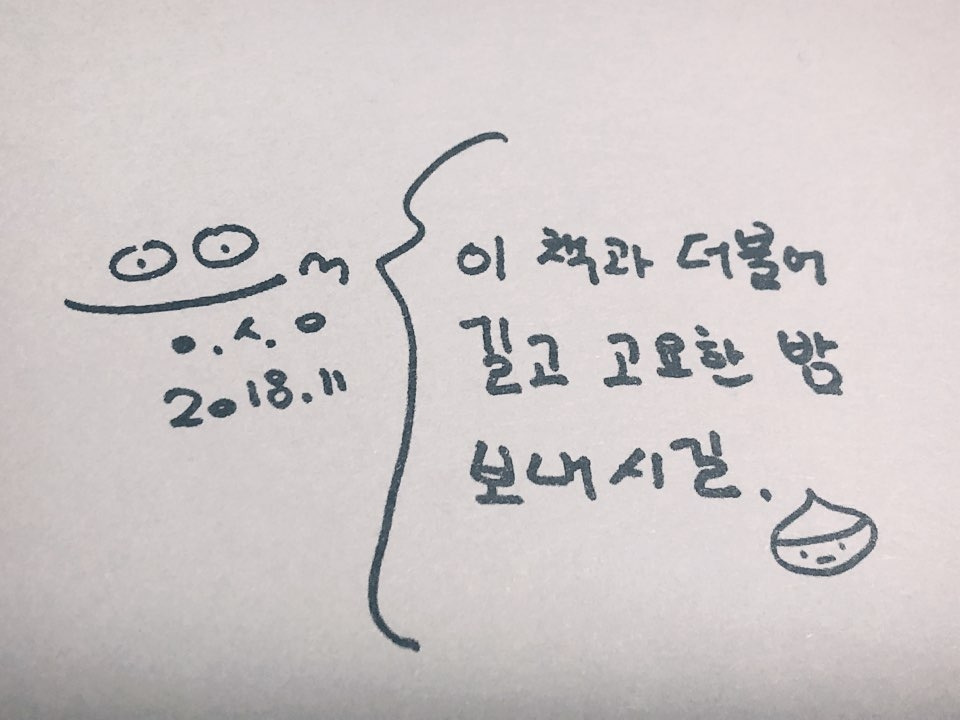 ㅇ.ㅅ.ㅇ
2018.11
이 책과 더불어
길고 고요한 밤
보내시길.